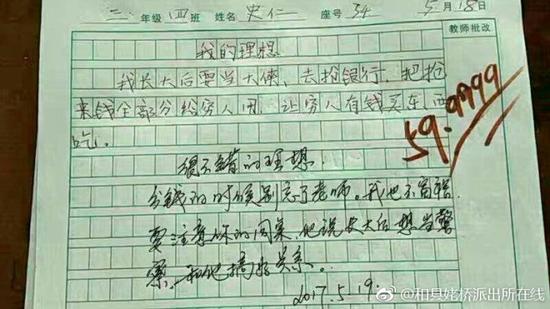 二年级 四班 姓名 史仁 座号 34 5月18日
教师批改
我的理想
我长大后要当大侠,去抢银行,把抢
来钱全部分给穷人用,让穷人有钱买东西
吃.
59.9999
很不错的理想.
分钱的时候别忘了老师。我也不富裕
要注意你的同桌.他说长大后想当警
察.和他搞好关系.
2017.5.19.
@和县姥桥派出所在线